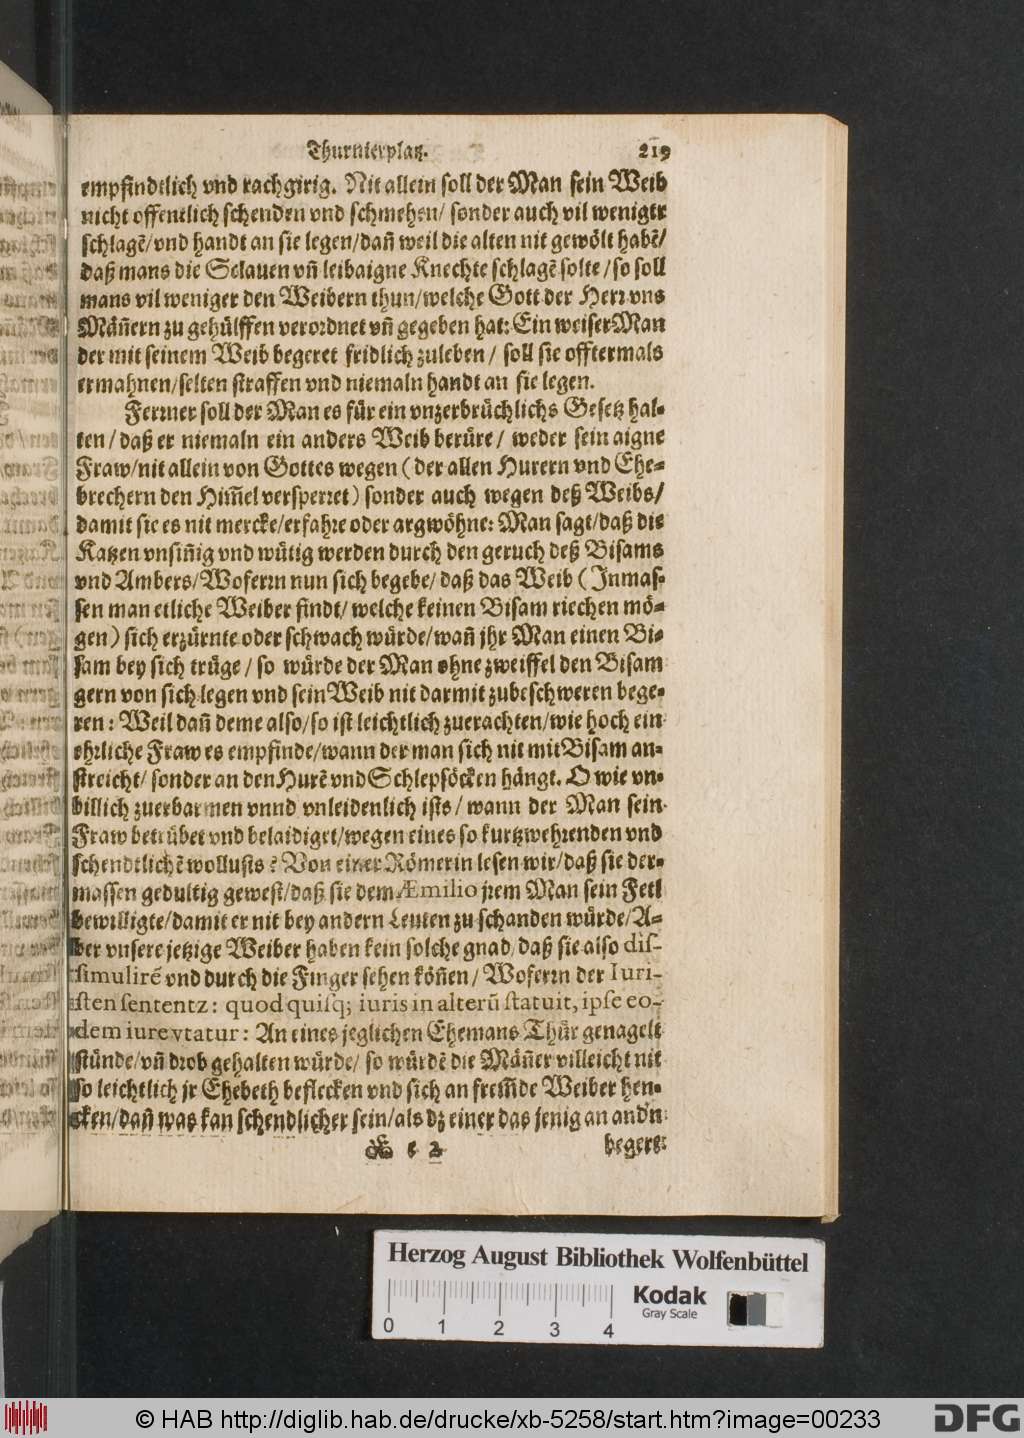 Thurnierplatz. 219
empfindtlich vnd rachgirig. Nit allein soll der Man sein Weib
nicht offentlich schenden vnd schmehen/ sonder auch vil weniger
schlagē/vnd handt an sie legen/dañ weil die alten nit gewölt habē/
daß mans die Sclauen vñ leibaigne Knechte schlagē solte/so soll
mans vil weniger den Weibern thun/welche Gott der Herr vns
Mäñern zu gehülffen verordnet vñ gegeben hat: Ein weiser Man
der mit seinem Weib begeret fridlich zuleben/ soll sie offtermals
ermahnen/selten straffen vnd niemaln handt an sie legen.
Ferrner soll der Man es für ein vnzerbrüchlichs Gesetz hal-
ten/daß er niemaln ein anders Weib berüre/ weder sein aigne
Fraw/nit allein von Gottes wegen (der allen Hurern vnd Ehe-
brechern den Him̃el versperret) sonder auch wegen deß Weibs/
damit sie es nit mercke/erfahre oder argwöhne: Man sagt/daß die
Katzen vnsiñig vnd wütig werden durch den geruch deß Bisams
vnd Ambers/Woferrn nun sich begebe/ daß das Weib (Inmas-
sen man etliche Weiber findt/ welche keinen Bisam riechen mö-
gen) sich erzürnte oder schwach würde/wañ jhr Man einen Bi-
sam bey sich trüge/ so würde der Man ohne zweiffel den Bisam
gern von sich legen vnd sein Weib nit darmit zubeschweren bege-
ren: Weil dañ deme also/so ist leichtlich zuerachten/wie hoch ein
ehrliche Fraw es empfinde/wann der man sich nit mit Bisam an-
streicht/ sonder an den Hurē vnd Schlepsöcken hängt. O wie vn-
billich zuerbarmen vnnd vnleidenlich ists/ wann der Man sein
Fraw betrübet vnd belaidiget/wegen eines so kurtzwehrenden vnd
schendtlichē wollusts? Von einer Römerin lesen wir/daß sie der-
massen gedultig gewest/daß sie dem Æmilio jrem Man sein Fetl
bewilligte/damit er nit bey andern Leuten zu schanden würde/A-
ber vnsere jetzige Weiber haben kein solche gnad/daß sie also dis-
simulirē vnd durch die Finger sehen köñen/ Woferrn der Iuri-
sten sententz: quod quisq; iuris in alterū statuit, ipse eo-
dem iure vtatur: An eines jeglichen Ehemans Thür genagelt
stünde/vñ drob gehalten würde/ so würdē die Mäñer villeicht nit
so leichtlich jr Ehebeth beflecken vnd sich an frem̃de Weiber hen-
cken/dañ was kan schendlicher sein/als dz einer das jenig an andn
Ee 2 begert
Herzog August Bibliothek Wolfenbüttel
0 1 2 3 4
Kodak
Gray Scale
© HAB http://diglib.hab.de/drucke/xb-5258/start.htm?image=00233
DFG